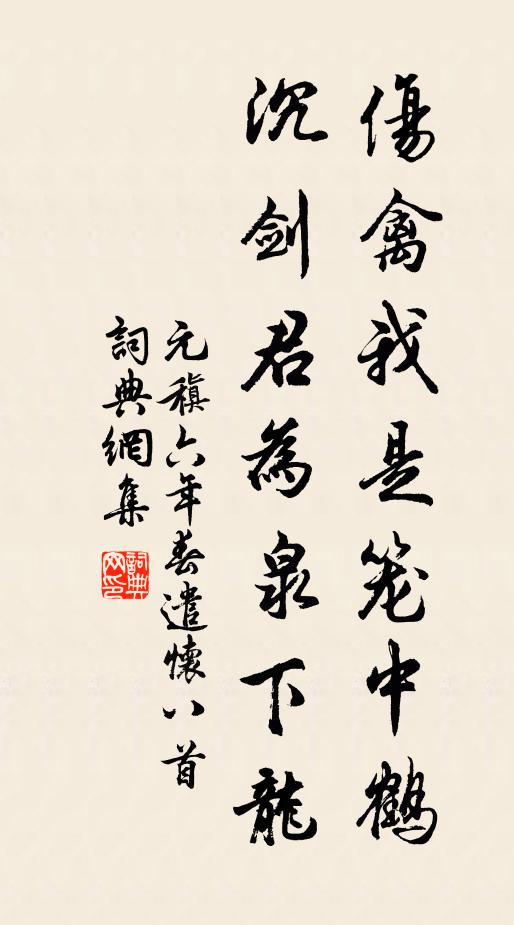 傷禽我是笼中鶴
沉剑君為泉下龍
元稹六年春遣懷八首
詞典網集
詞典
网印